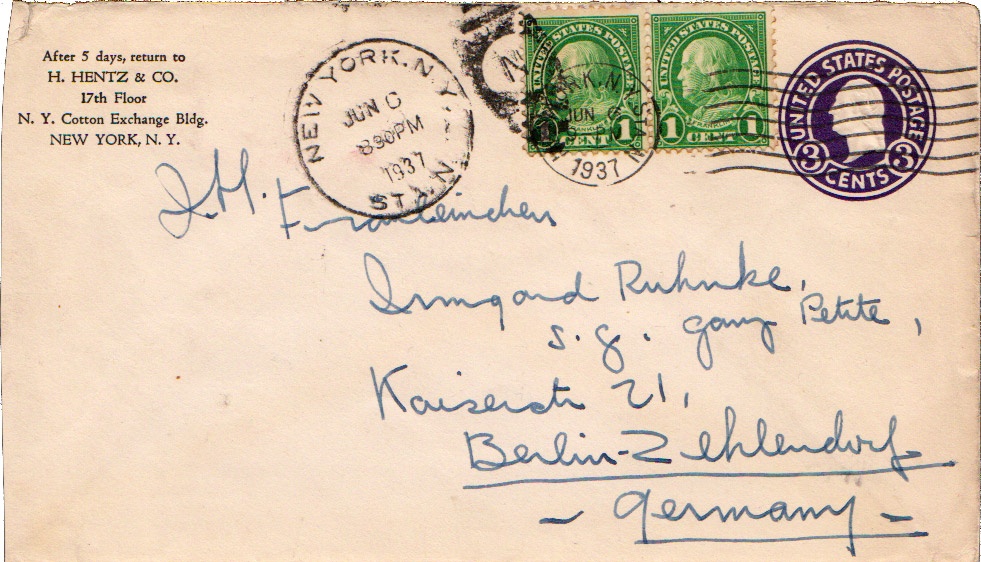 After 5 days, return to
H. HENTZ & CO.
17th Floor
N. Y. Cotton Exchange Bldg.
NEW YORK, N. Y.
NEW YORK, N.Y.
JUN 6
830PM
1937
STA. N
UNITED STATES POSTAGE
1 CENT 1
JUN 6
1937
UNITED STATES POSTAGE
1 CENT 1
UNITED STATES POSTAGE
3 CENTS 3
I.H. Fräuleinchen
Irmgard Ruhnke,
s.g. ganz Petite,
Kaiserstr 21,
Berlin-Zehlendorf
- Germany -